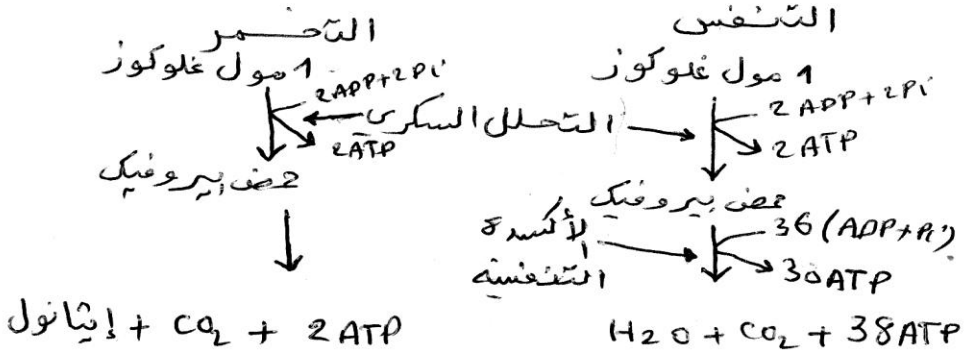 التنفس
1 مول غلوكوز
2ADP+2Pi
2ATP
التحلل السكري
حمض بيروفيك
36(ADP+Pi)
30ATP
الأكسدة
التنفسية
H2O + CO2 + 38ATP
التخمر
1 مول غلوكوز
2ADP+2Pi
2ATP
حمض بيروفيك
إيثانول + CO2 + 2ATP